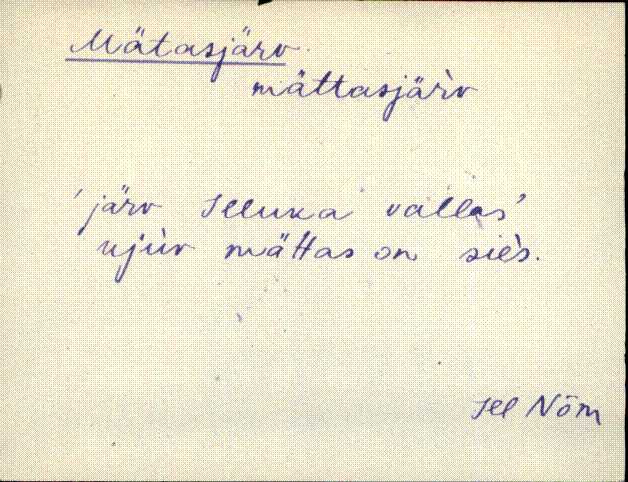 Mätasjärv
mättasjär̀v
'järv Illuka vallas'
ujùv mättas on siès.
Ill Nõm